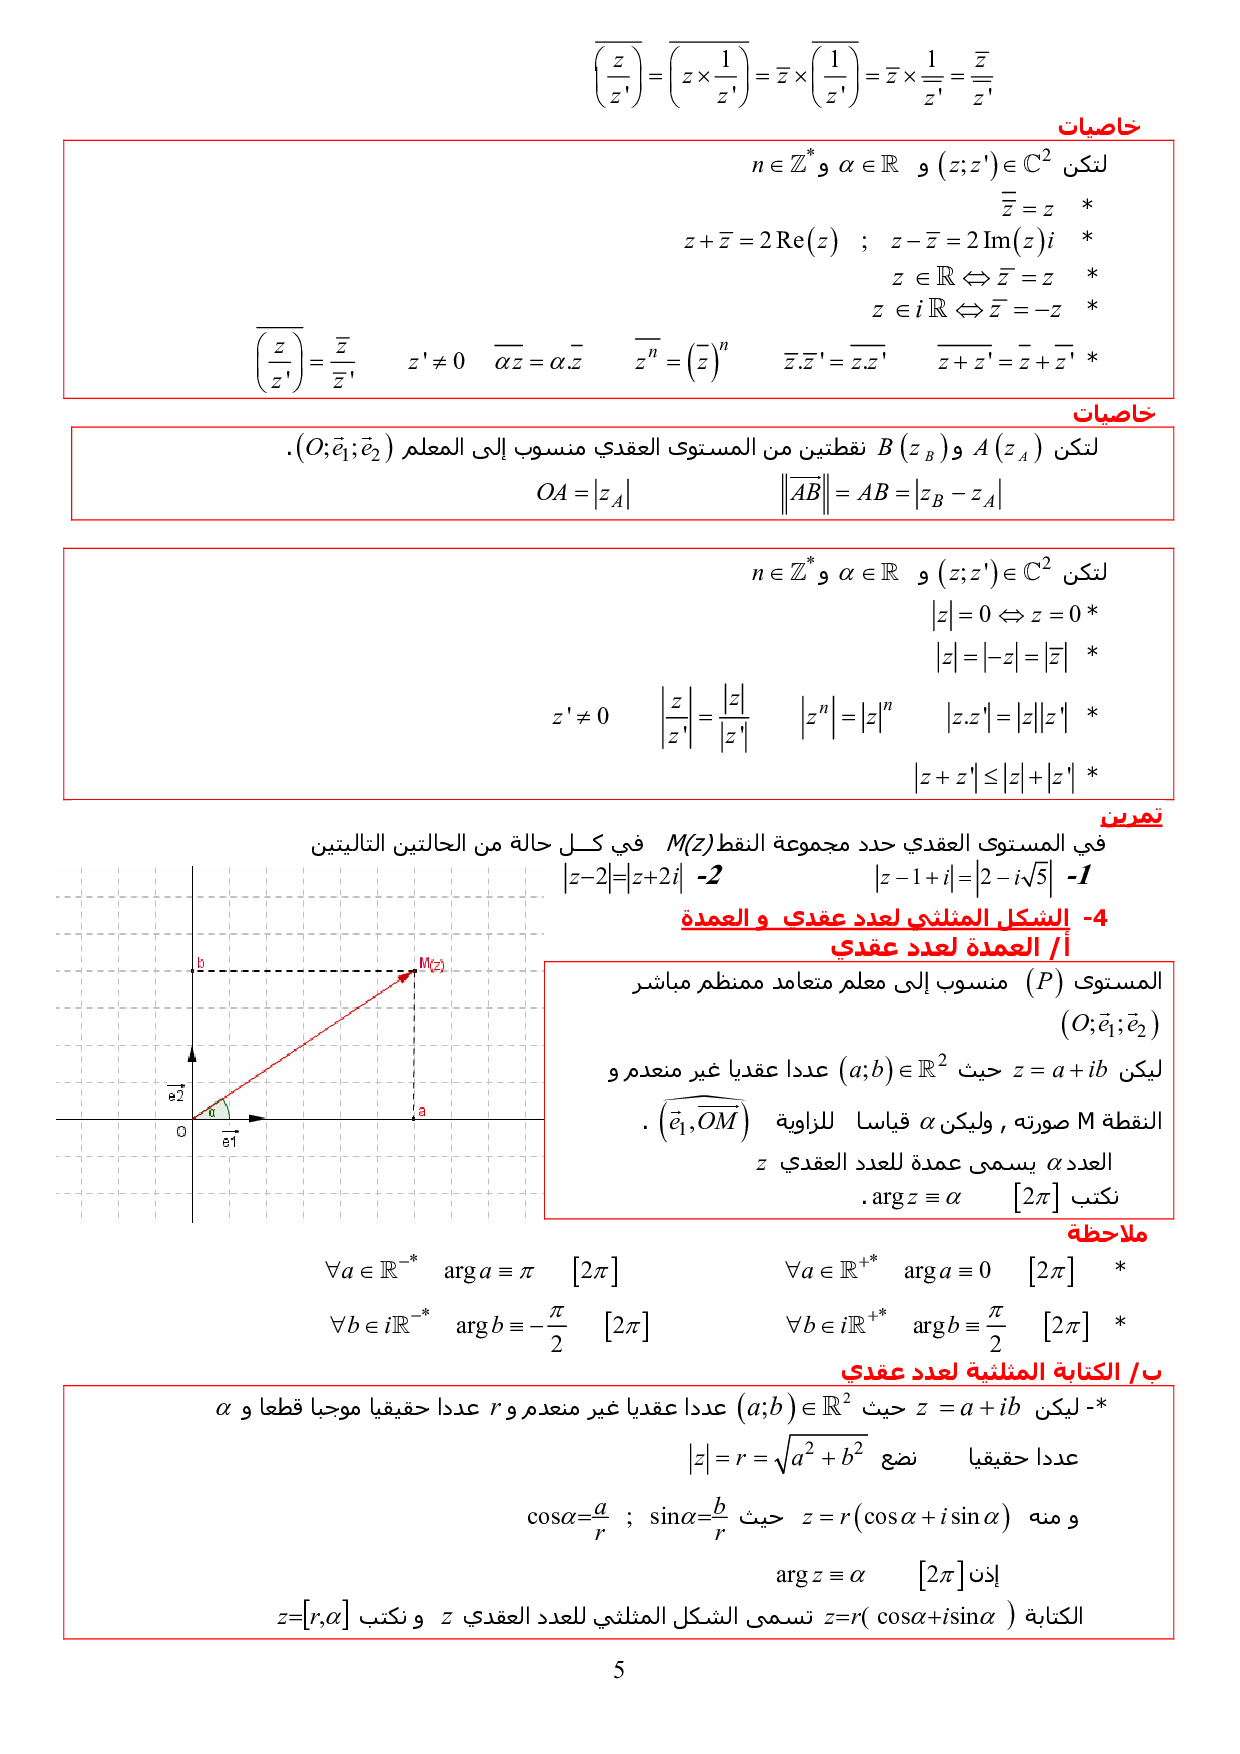 $\overline{\left(\frac{z}{z'}\right)} = \overline{\left(z \times \frac{1}{z'}\right)} = \overline{z} \times \overline{\left(\frac{1}{z'}\right)} = \overline{z} \times \frac{1}{\overline{z'}} = \frac{\overline{z}}{\overline{z'}}$
خاصيات
لتكن $(z;z') \in \mathbb{C}^2$ و $\alpha \in \mathbb{R}$ و $n \in \mathbb{Z}^*$
* $\overline{\overline{z}} = z$
* $z + \overline{z} = 2\operatorname{Re}(z)$ ; $z - \overline{z} = 2\operatorname{Im}(z)i$
* $z \in \mathbb{R} \Leftrightarrow \overline{z} = z$
* $z \in i\mathbb{R} \Leftrightarrow \overline{z} = -z$
* $\overline{z+z'} = \overline{z} + \overline{z'}$ $\overline{z}.\overline{z}' = \overline{z.z'}$ $\overline{z^n} = (\overline{z})^n$ $\overline{\alpha z} = \alpha.\overline{z}$ $z' \neq 0$ $\overline{\left(\frac{z}{z'}\right)} = \frac{\overline{z}}{\overline{z}'}$
خاصيات
لتكن $A(z_A)$ و $B(z_B)$ نقطتين من المستوى العقدي منسوب إلى المعلم $(O;\vec{e}_1;\vec{e}_2)$.
$\left\|\overrightarrow{AB}\right\| = AB = |z_B - z_A|$ $OA = |z_A|$
لتكن $(z;z') \in \mathbb{C}^2$ و $\alpha \in \mathbb{R}$ و $n \in \mathbb{Z}^*$
* $|z| = 0 \Leftrightarrow z = 0$
* $|z| = |-z| = |\overline{z}|$
* $|z.z'| = |z||z'|$ $|z^n| = |z|^n$ $\left|\frac{z}{z'}\right| = \frac{|z|}{|z'|}$ $z' \neq 0$
* $|z + z'| \leq |z| + |z'|$
تمرين
في المستوى العقدي حدد مجموعة النقط M(z) في كـــل حالة من الحالتين التاليتين
1- $|z-1+i| = |2-i\sqrt{5}|$ 2- $|z-2| = |z+2i|$
4- الشكل المثلثي لعدد عقدي و العمدة
أ/ العمدة لعدد عقدي
المستوى $(P)$ منسوب إلى معلم متعامد ممنظم مباشر
$(O;\vec{e}_1;\vec{e}_2)$
ليكن $z = a+ib$ حيث $(a;b) \in \mathbb{R}^2$ عددا عقديا غير منعدم و
النقطة M صورته , وليكن $\alpha$ قياسا للزاوية $\widehat{(\vec{e}_1,\overrightarrow{OM})}$ .
العدد $\alpha$ يسمى عمدة للعدد العقدي $z$
نكتب $\arg z \equiv \alpha$ $[2\pi]$ .
b
M(z)
e2
α
a
O
e1
ملاحظة
* $\forall a \in \mathbb{R}^{+*}$ $\arg a \equiv 0$ $[2\pi]$ $\forall a \in \mathbb{R}^{-*}$ $\arg a \equiv \pi$ $[2\pi]$
* $\forall b \in i\mathbb{R}^{+*}$ $\arg b \equiv \frac{\pi}{2}$ $[2\pi]$ $\forall b \in i\mathbb{R}^{-*}$ $\arg b \equiv -\frac{\pi}{2}$ $[2\pi]$
ب/ الكتابة المثلثية لعدد عقدي
*- ليكن $z = a+ib$ حيث $(a;b) \in \mathbb{R}^2$ عددا عقديا غير منعدم و $r$ عددا حقيقيا موجبا قطعا و $\alpha$
عددا حقيقيا نضع $|z| = r = \sqrt{a^2+b^2}$
و منه $z = r(\cos\alpha + i\sin\alpha)$ حيث $\cos\alpha = \frac{a}{r}$ ; $\sin\alpha = \frac{b}{r}$
إذن $\arg z \equiv \alpha$ $[2\pi]$
الكتابة $z = r(\cos\alpha + i\sin\alpha)$ تسمى الشكل المثلثي للعدد العقدي $z$ و نكتب $z = [r,\alpha]$
5